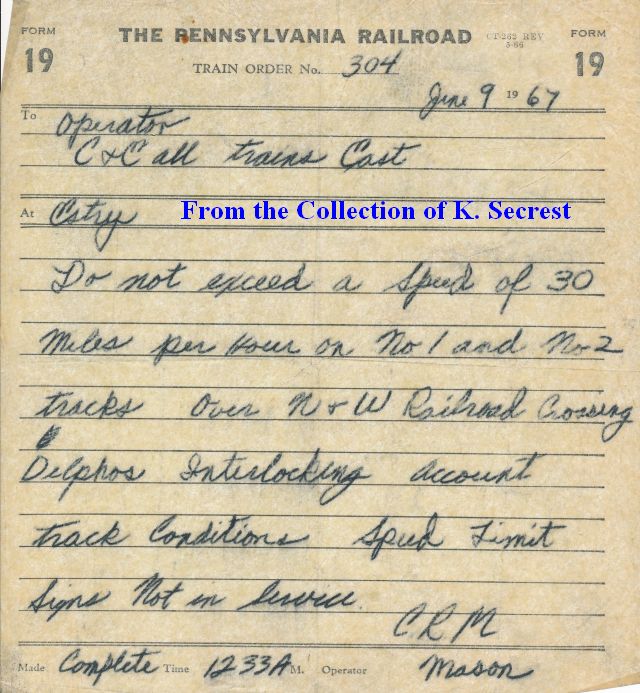 FORM 19 THE PENNSYLVANIA RAILROAD CT-263 REV 5-66 FORM 19
TRAIN ORDER No. 304
June 9 19 67
To Operator
C&C all trains East
At
From the Collection of K. Secrest
Do not exceed a Speed of 30
Miles per Hour on No 1 and No 2
tracks Over N & W Railroad Crossing
Delphos Interlocking account
track Conditions Speed Limit
Signs Not in Service.
CRM
Made Complete Time 1233A M. Operator Mason